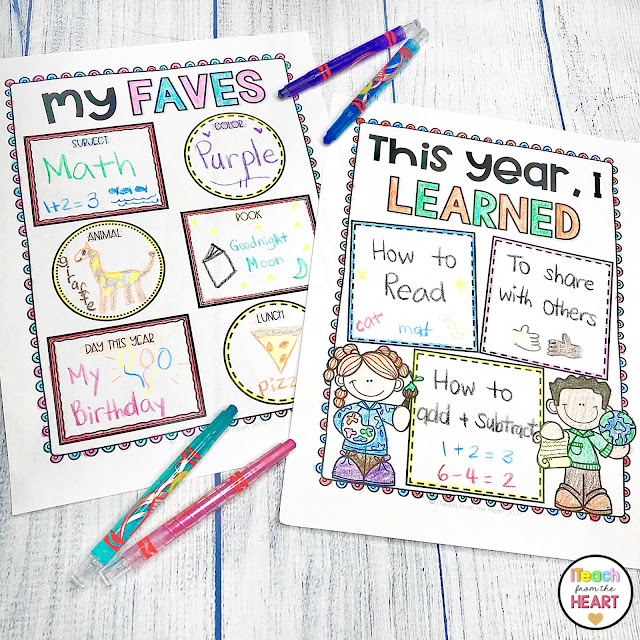 my FAVES
SUBJECT
Math
1+2=3
COLOR
Purple
ANIMAL
giraffe
BOOK
Goodnight
Moon
DAY THIS YEAR
My
Birthday
LUNCH
pizz
This year, I
LEARNED
How to
Read
cat mat
To share
with others
How to
add + subtract
1+2=3
6-4=2
iTeach
from the
HEART